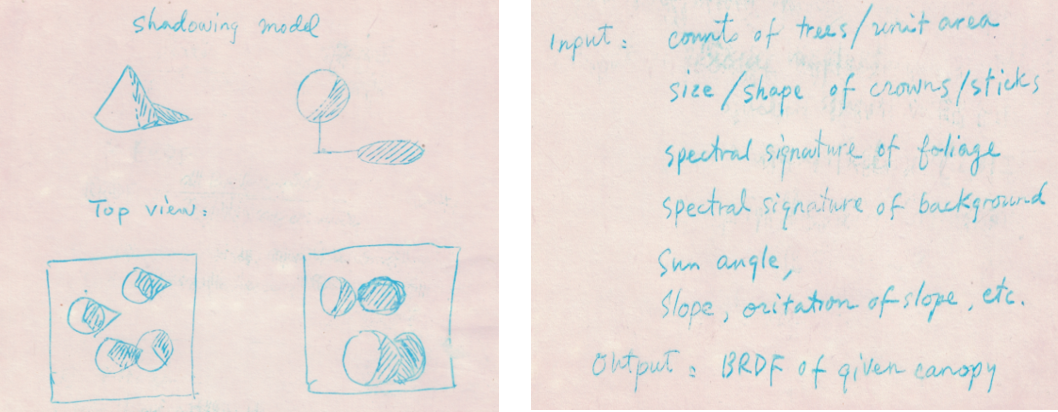 Shadowing model
Top view:
Input: counts of trees/unit area
size/shape of crowns/sticks
spectral signature of foliage
spectral signature of background
Sun angle,
Slope, oritation of slope, etc.
Output: BRDF of given canopy